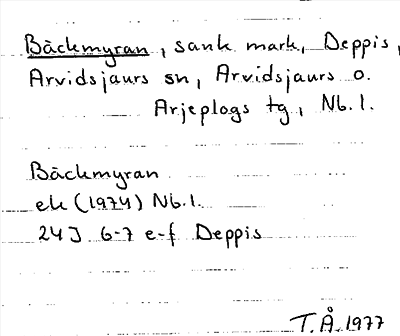 Bäckmyran, sank mark, Deppis,
Arvidsjaurs sn, Arvidsjaurs o.
Arjeplogs tg, Nb. l.
Bäckmyran
ek (1974) Nb. l.
24J 6-7 e-f Deppis
T.Å. 1977